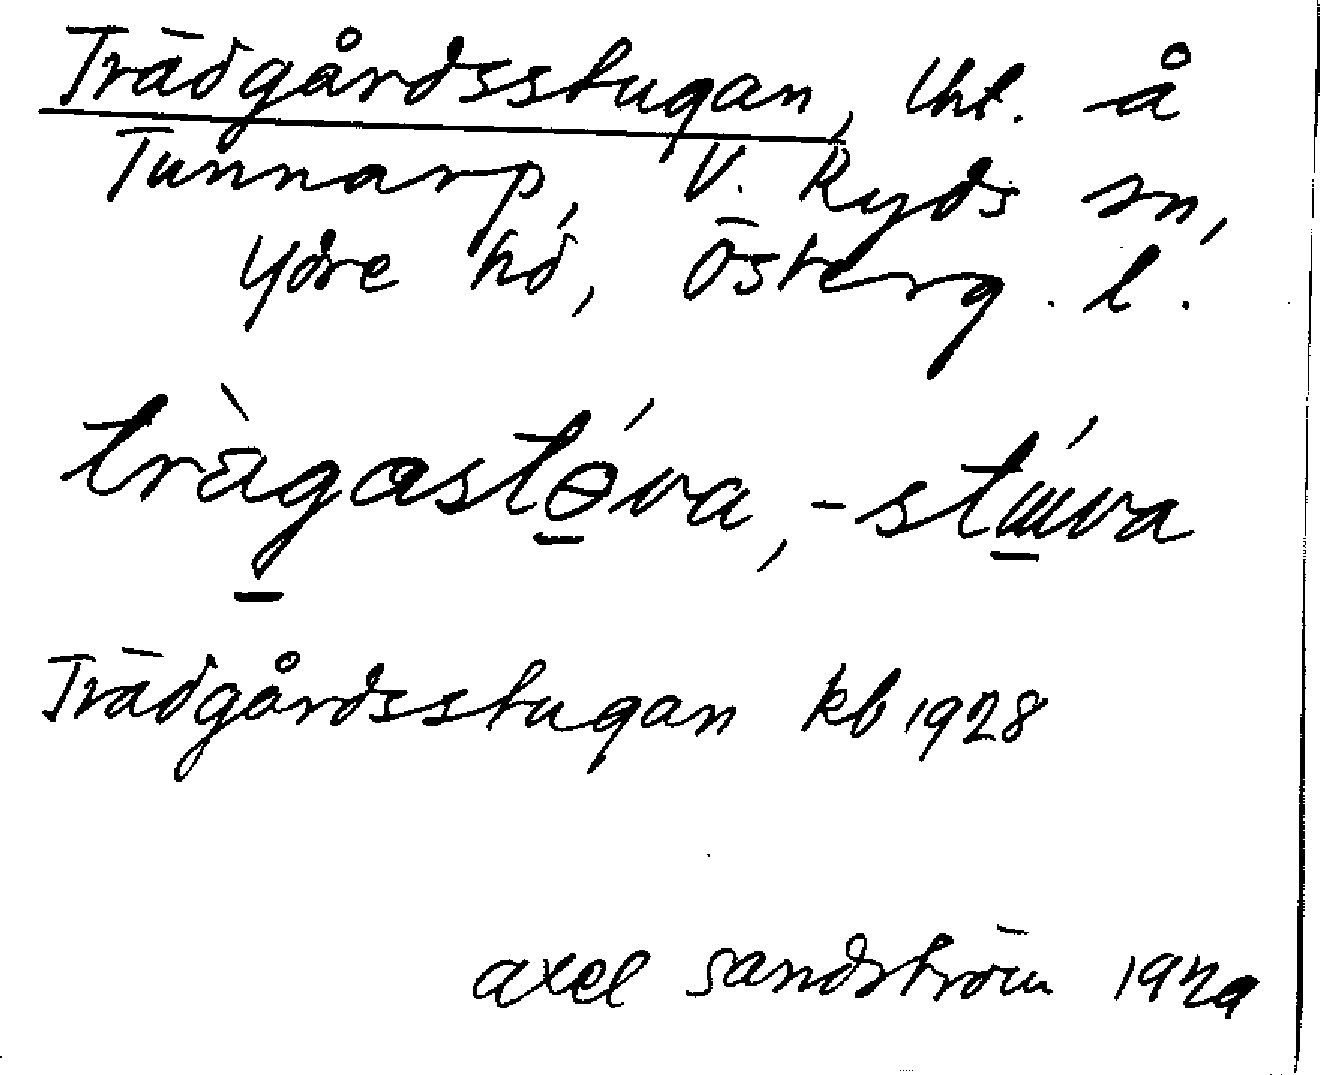 Trädgårdsstugan, lht. å
Tunnarp, V. Ryds sn,
Ydre hd, Österg. l.
tràgastǿva, -stɯ́va
Trädgårdsstugan kb 1928
axel sandström 1929